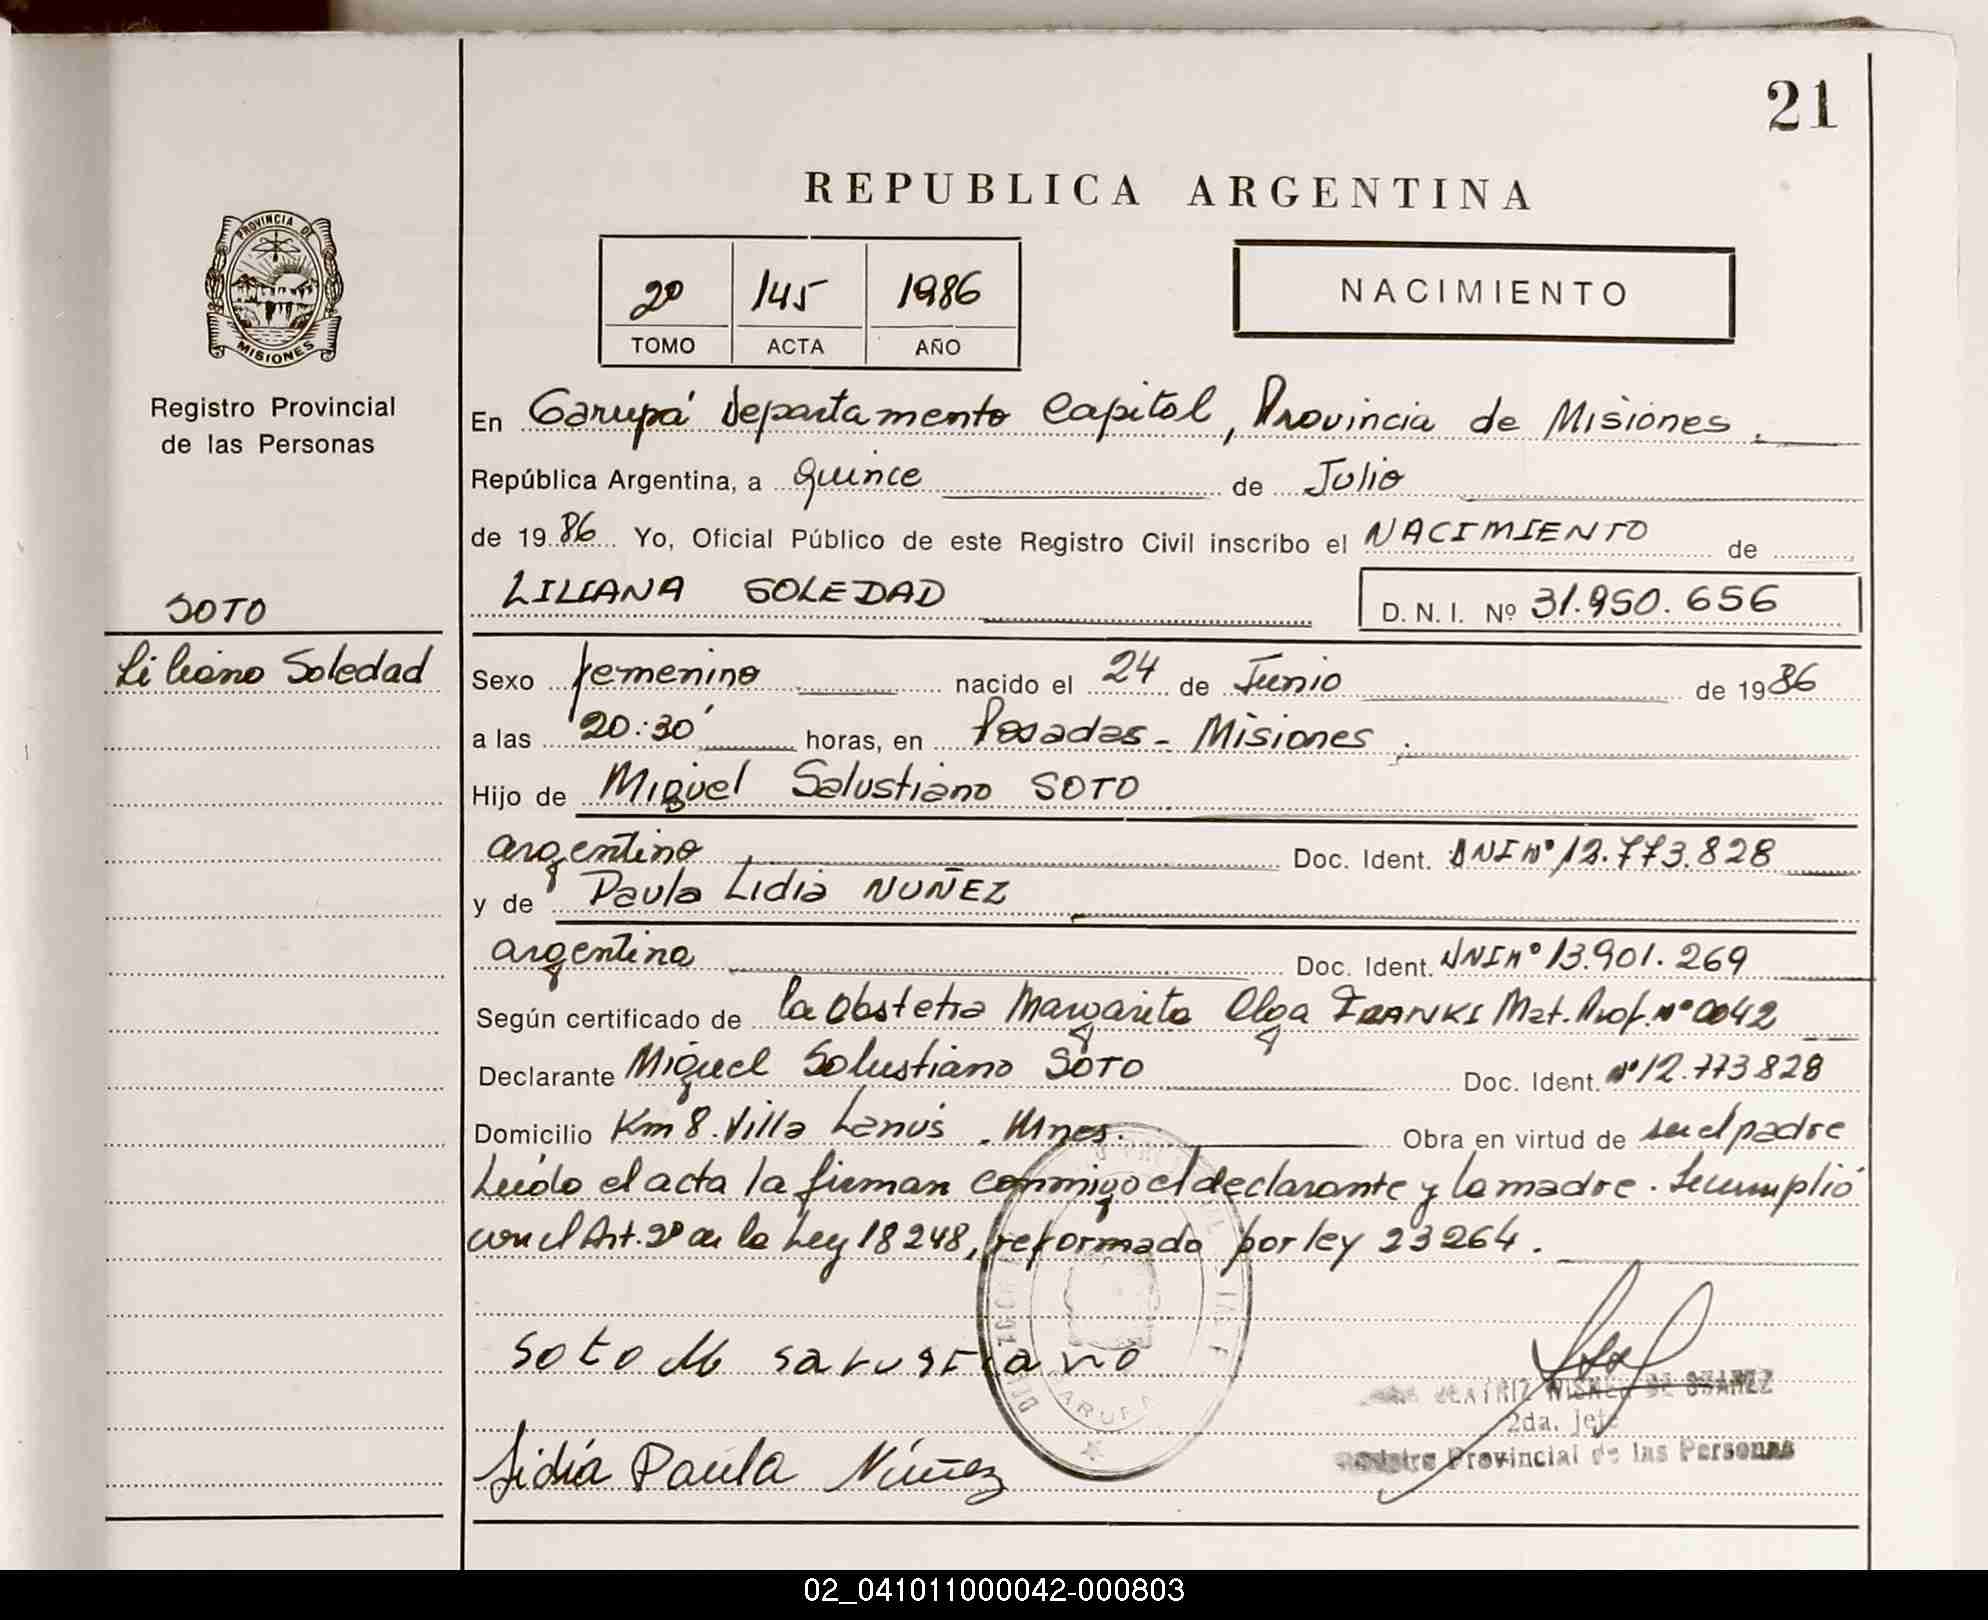 21
REPUBLICA ARGENTINA
PROVINCIA DE
MISIONES
Registro Provincial
de las Personas
2º 145 1986
TOMO ACTA AÑO
NACIMIENTO
En Garupá Departamento Capital, Provincia de Misiones.
República Argentina, a quince de Julio
de 1986 Yo, Oficial Público de este Registro Civil inscribo el NACIMIENTO de
LILIANA SOLEDAD D. N. I. Nº 31.950.656
SOTO
Liliana Soledad
Sexo femenino nacido el 24 de Junio de 1986
a las 20:30' horas, en Posadas - Misiones.
Hijo de Miguel Salustiano SOTO
argentino Doc. Ident. DNI Nº 12.773.828
y de Paula Lidia NUÑEZ
argentina Doc. Ident. DNI Nº 13.901.269
Según certificado de la Obstetra Margarita Olga FRANKI Mat. Prof. Nº 0042
Declarante Miguel Salustiano SOTO Doc. Ident. Nº 12.773.828
Domicilio Km 8. Villa Lanús. Mnes. Obra en virtud de ser el padre
Leído el acta la firman conmigo el declarante y la madre. Se cumplió
con el Art. 2º de la Ley 18248, reformado por ley 23264.
Soto M Salustiano
BEATRIZ DE SUAREZ
2da. Jefe
Registro Provincial de las Personas
Lidia Paula Núñez
GARUPA
02_041011000042-000803